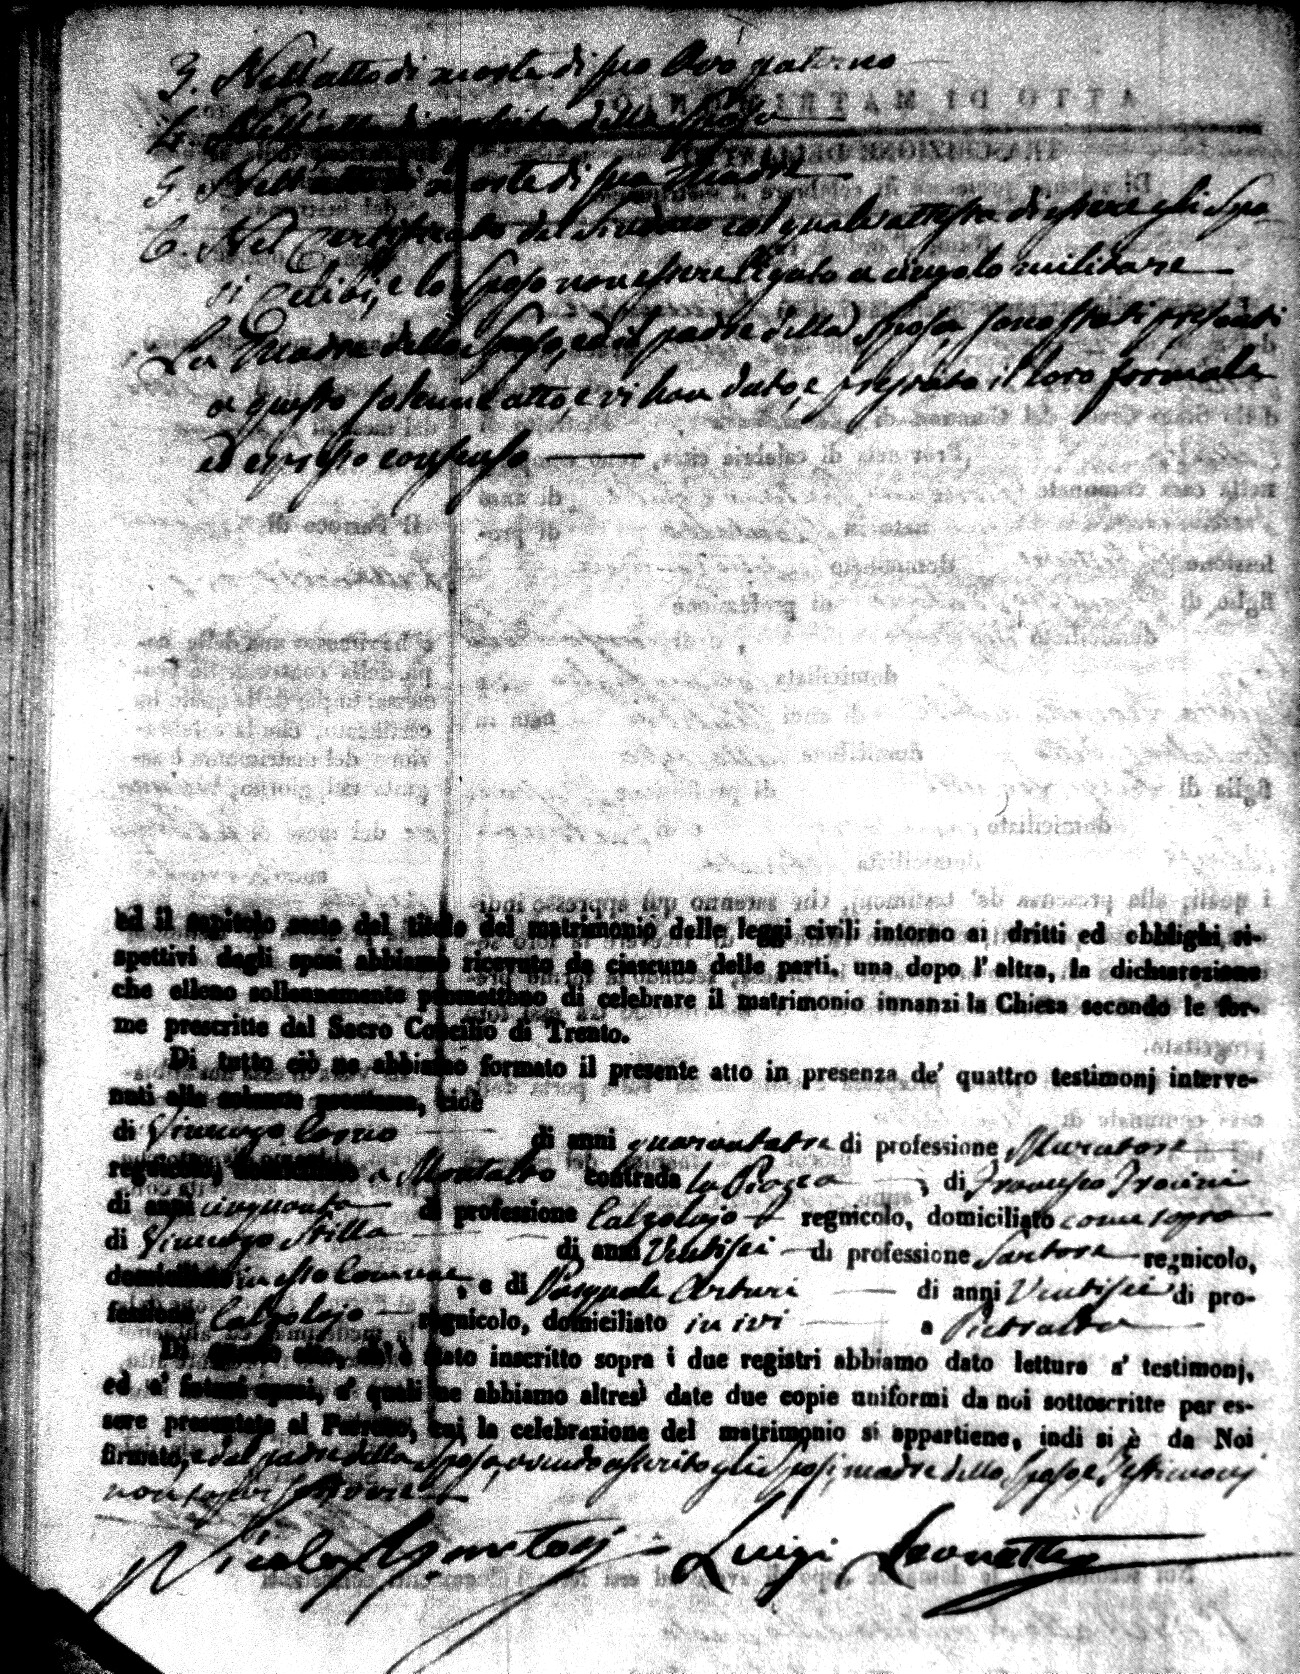 3. Nell'atto di morte di suo Avo paterno
4. Nell'atto di nascita della Sposa
5. Nell'atto di morte di sua Madre
6. Nel Certificato del Sindaco col quale attesta di essere gli Spo
si Celibi, e lo Sposo non essere legato a cingolo militare
La Madre dello Sposo, ed il padre della Sposa, sono stati presenti
a questo solenne atto, e vi han dato, e prestato il loro formale
ed espresso consenso
ed il capitolo sesto del titolo del matrimonio delle leggi civili intorno ai dritti ed obblighi ri-
spettivi degli sposi abbiamo ricevuto da ciascuna delle parti, una dopo l'altra, la dichiarazione
che elleno sollennemente promettono di celebrare il matrimonio innanzi la Chiesa secondo le for-
me prescritte dal Sacro Concilio di Trento.
Di tutto ciò ne abbiamo formato il presente atto in presenza de' quattro testimonj interve-
nuti alla solenne promessa, cioè
di Vincenzo di anni quarantatre di professione Muratore
regnicolo, domiciliato a Montalto contrada la Piazza, di Francesco
di anni cinquanta di professione Calzolajo regnicolo, domiciliato come sopra
di Vincenzo Stilla di anni Ventisei di professione Sartore regnicolo,
domiciliato in esso Comune, e di Pasquale Arturi di anni Ventisei di pro-
fessione Calzolajo regnicolo, domiciliato in ivi a
Di questo atto, ch'è stato inscritto sopra i due registri abbiamo dato lettura a' testimonj,
ed a' futuri sposi, a' quali ne abbiamo altresì date due copie uniformi da noi sottoscritte per es-
sere presentate al Parroco, cui la celebrazione del matrimonio si appartiene, indi si è da Noi
firmato, e dal padre della Sposa, avendo asserito gli Sposi, madre dello Sposo e Testimonj
non saper scrivere
Luigi